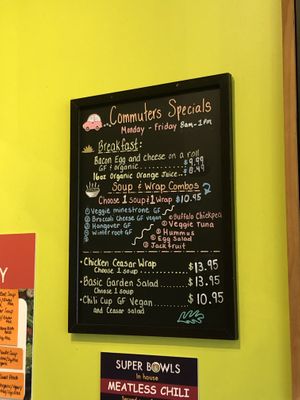 Commuters Specials
Monday - Friday 8am-1pm
Breakfast:
Bacon Egg and cheese on a roll
GF + organic $9.99
16oz Organic Orange Juice.. $8.49
Soup & Wrap Combos
Choose 1 soup & 1 Wrap $10.95
Veggie minestrone GF
Broccoli Cheese GF vegan
Hangover GF
Winter root GF
Buffalo Chickpea
Veggie Tuna
Hummus
Egg Salad
Jackfruit
Chicken Ceasar Wrap
Choose 1 soup $13.95
Basic Garden Salad
Choose 1 soup $13.95
Chili Cup GF Vegan
and Ceasar salad $10.95
Y
SUPER BOWLS
In house
MEATLESS CHILI